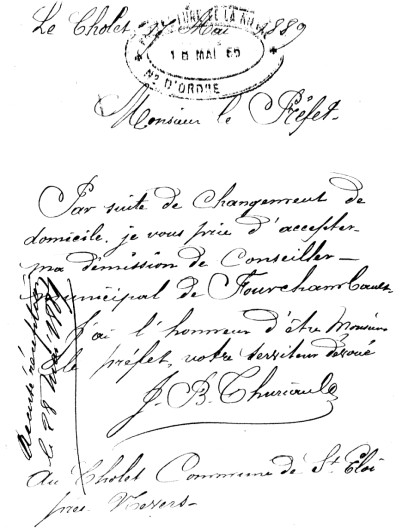 Le Cholet Mai 1889
TURE DE LA
18 MAI 89
N° D'ORDRE
Monsieur le Préfet.
Par suite de changement de
domicile, je vous prie d'accepter
ma démission de Conseiller
municipal de Fourchambault.
J'ai l'honneur d'être Monsieur
le préfet, votre serviteur dévoué
J. B. Thuriault
Au Cholet Commune de St Eloi
près Nevers.
Accusé réception
le 28 Mai 1889